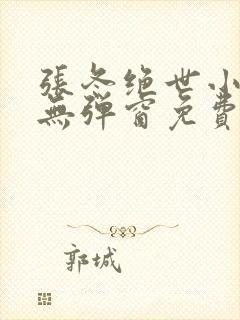 張冬绝世小
無彈窗免費
郭城